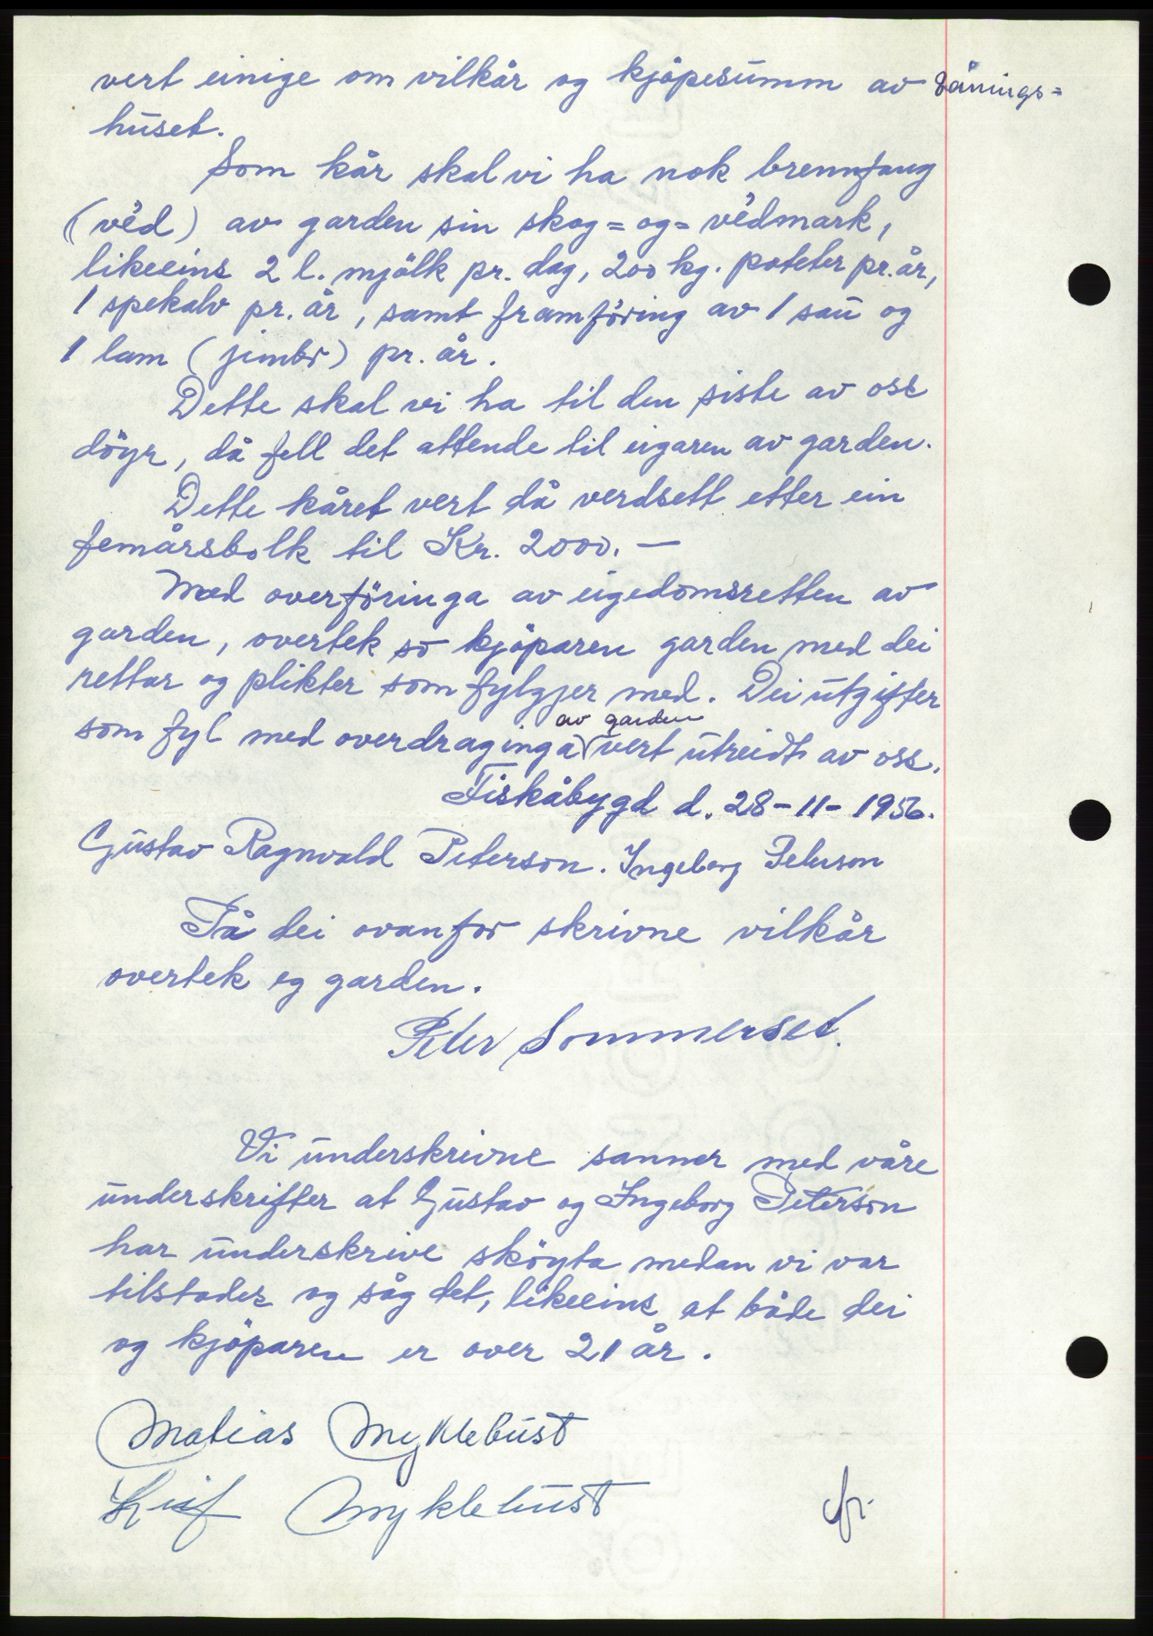 vert einige om vilkår og kjöpesumm av vånings=
huset.
Som kår skal vi ha nok brennfang
(véd) av garden sin skog= og= védmark,
likeeins 2 l. mjölk pr. dag, 200 kg. poteter pr. år,
1 spekalv pr. år, samt framföring av 1 sau og
1 lam (jimbr) pr. år.
Dette skal vi ha til den siste av oss
döyr, då fell det attende til eigaren av garden.
Dette kåret vert då verdsett etter ein
femårsbolk til Kr. 2000.—
Med overföringa av eigedomsretten av
garden, overtek so kjöparen garden med dei
rettar og plikter som fylgjer med. Dei utgifter
av garden
som fyl med overdraginga vert utreidt av oss.
Fiskåbygd d. 28-11-1956.
Gustav Ragnvald Peterson. Ingeborg Peterson
På dei ovanfor skrivne vilkår
overtek eg garden.
Peter Sommerset.
Vi underskrivne sanner med våre
underskrifter at Gustav og Ingeborg Peterson
har underskrive sköyta medan vi var
tilstades og såg det, likeeins at både dei
og kjöparen er over 21 år.
Matias Myklebust
Myklebust